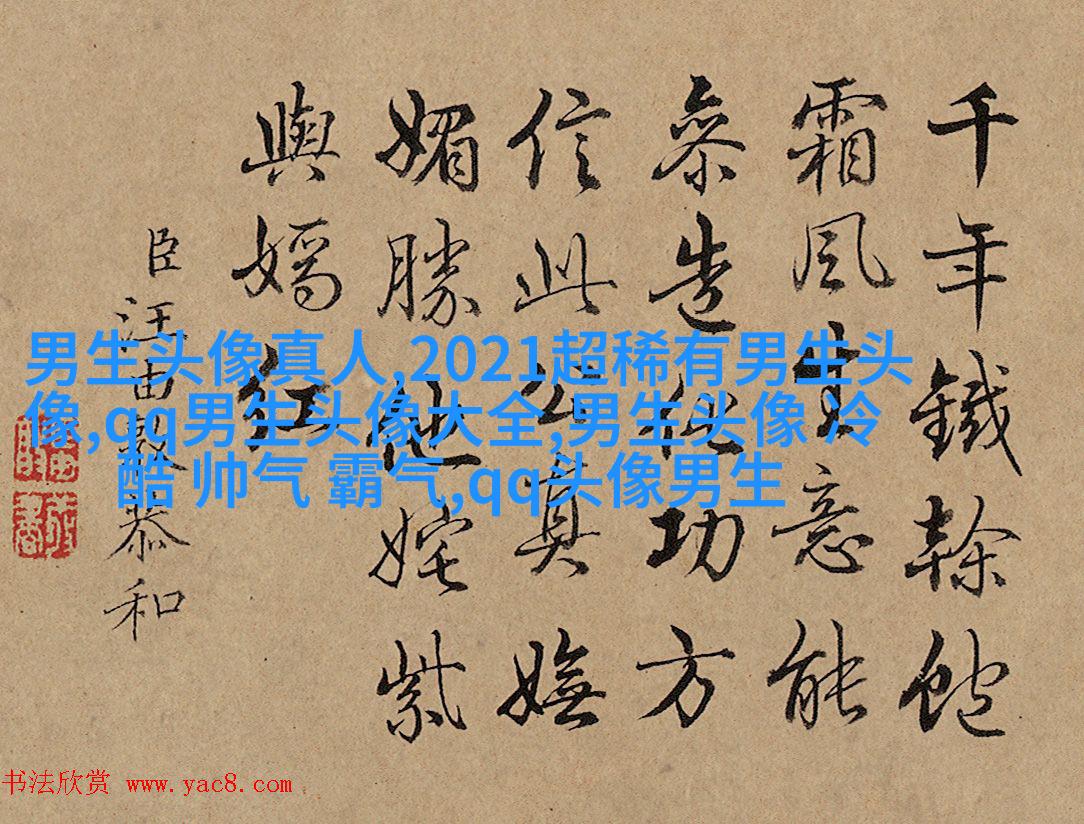 千年鐵幹飽
霜風生意能
叅造化功方
信此公真嫵
媚勝他姹紫
與嫣紅
臣汪由敦恭和
男生头像真人,2021超稀有男生头
像,qq男生头像大全,男生头像 冷
酷 帅气 霸气,qq头像男生
书法欣赏 www.yac8.com